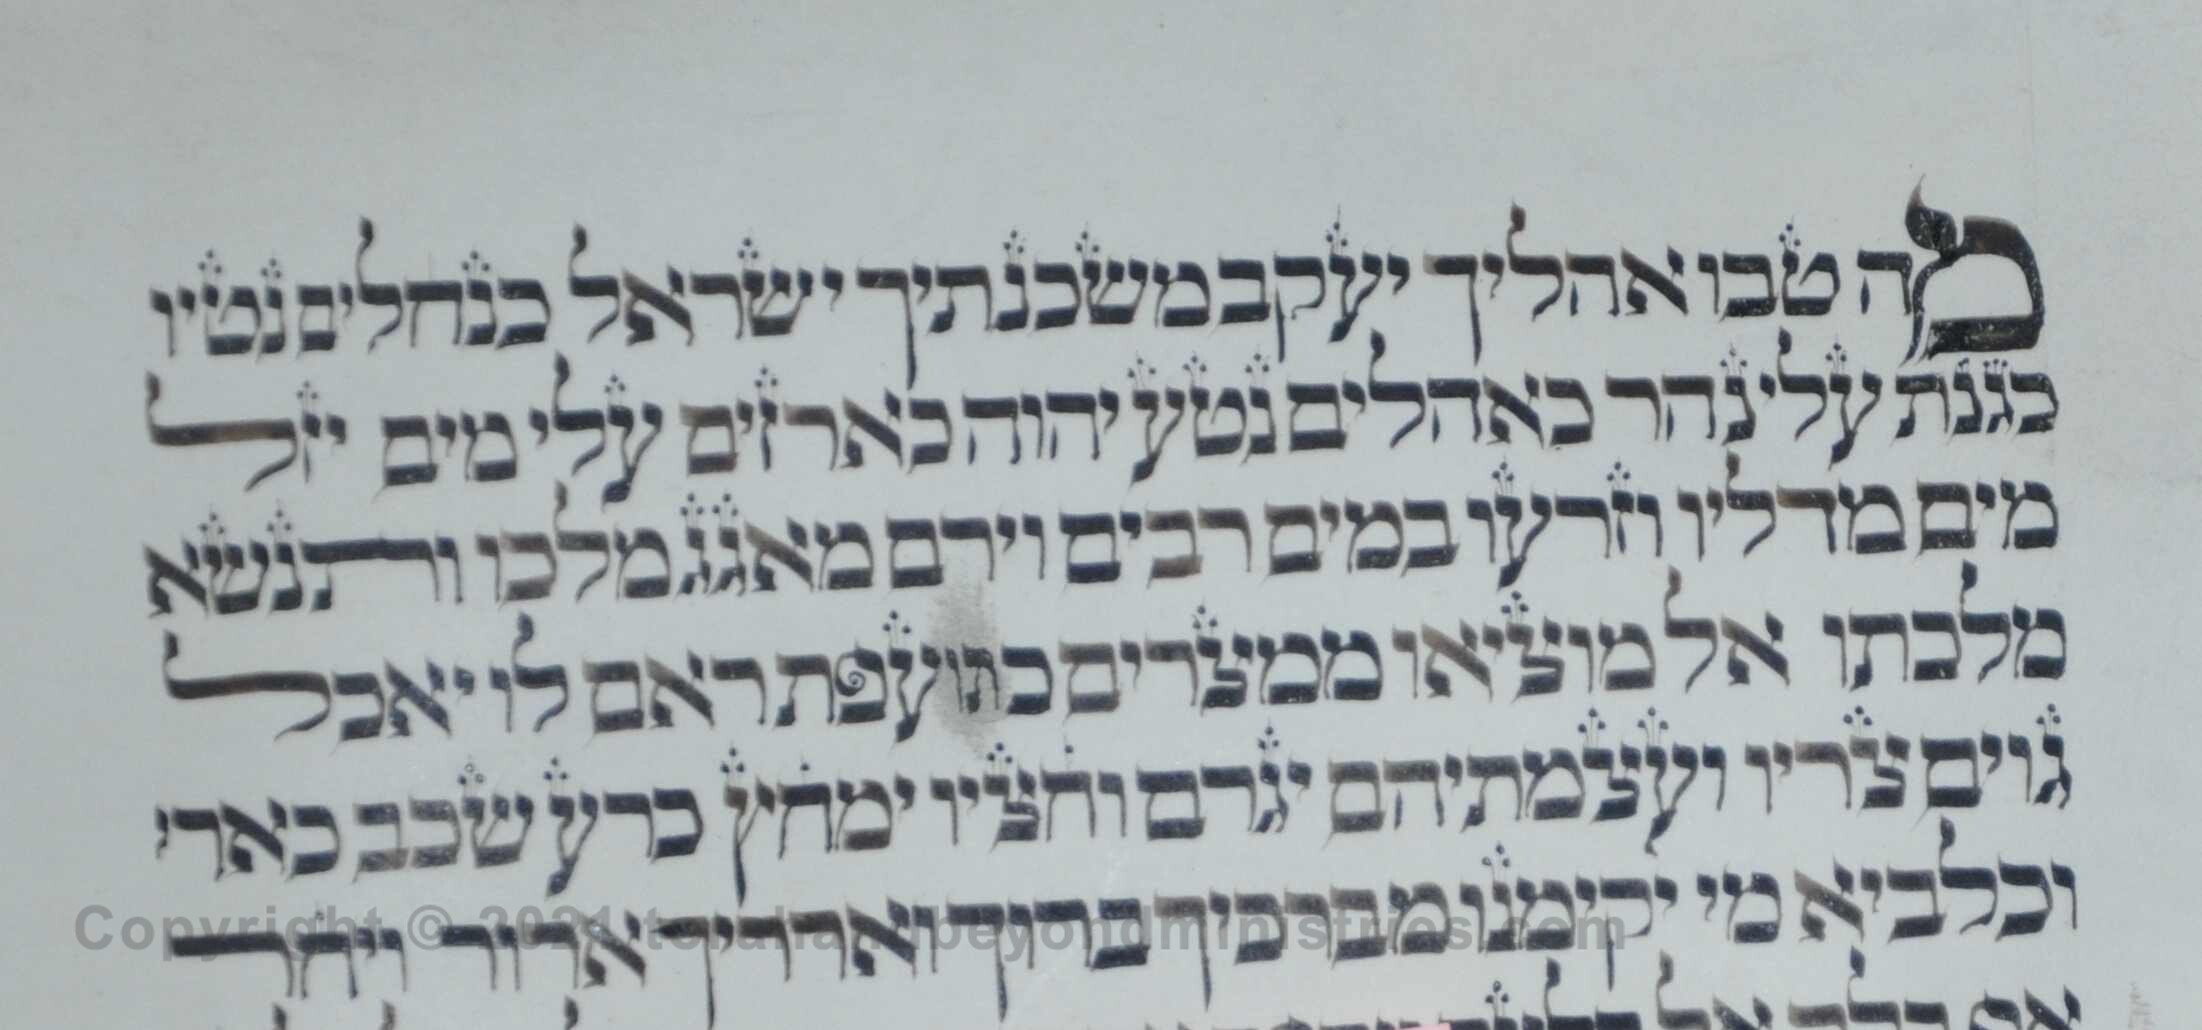 מה טבו אהליך יעקב משכנתיך ישראל כנחלים נטיו
כגנת עלי נהר כאהלים נטע יהוה כארזים עלי מים יזל
מים מדליו וזרעו במים רבים וירם מאגג מלכו ותנשא
מלכתו אל מוציאו ממצרים כתועפת ראם לו יאכל
גוים צריו ועצמתיהם יגרם וחציו ימחץ כרע שכב כארי
וכלביא מי יקימנו מברכיך ברוך וארריך ארור ויחר
Copyright © 2021 torahandbeyondministries.com
אף בלק אל